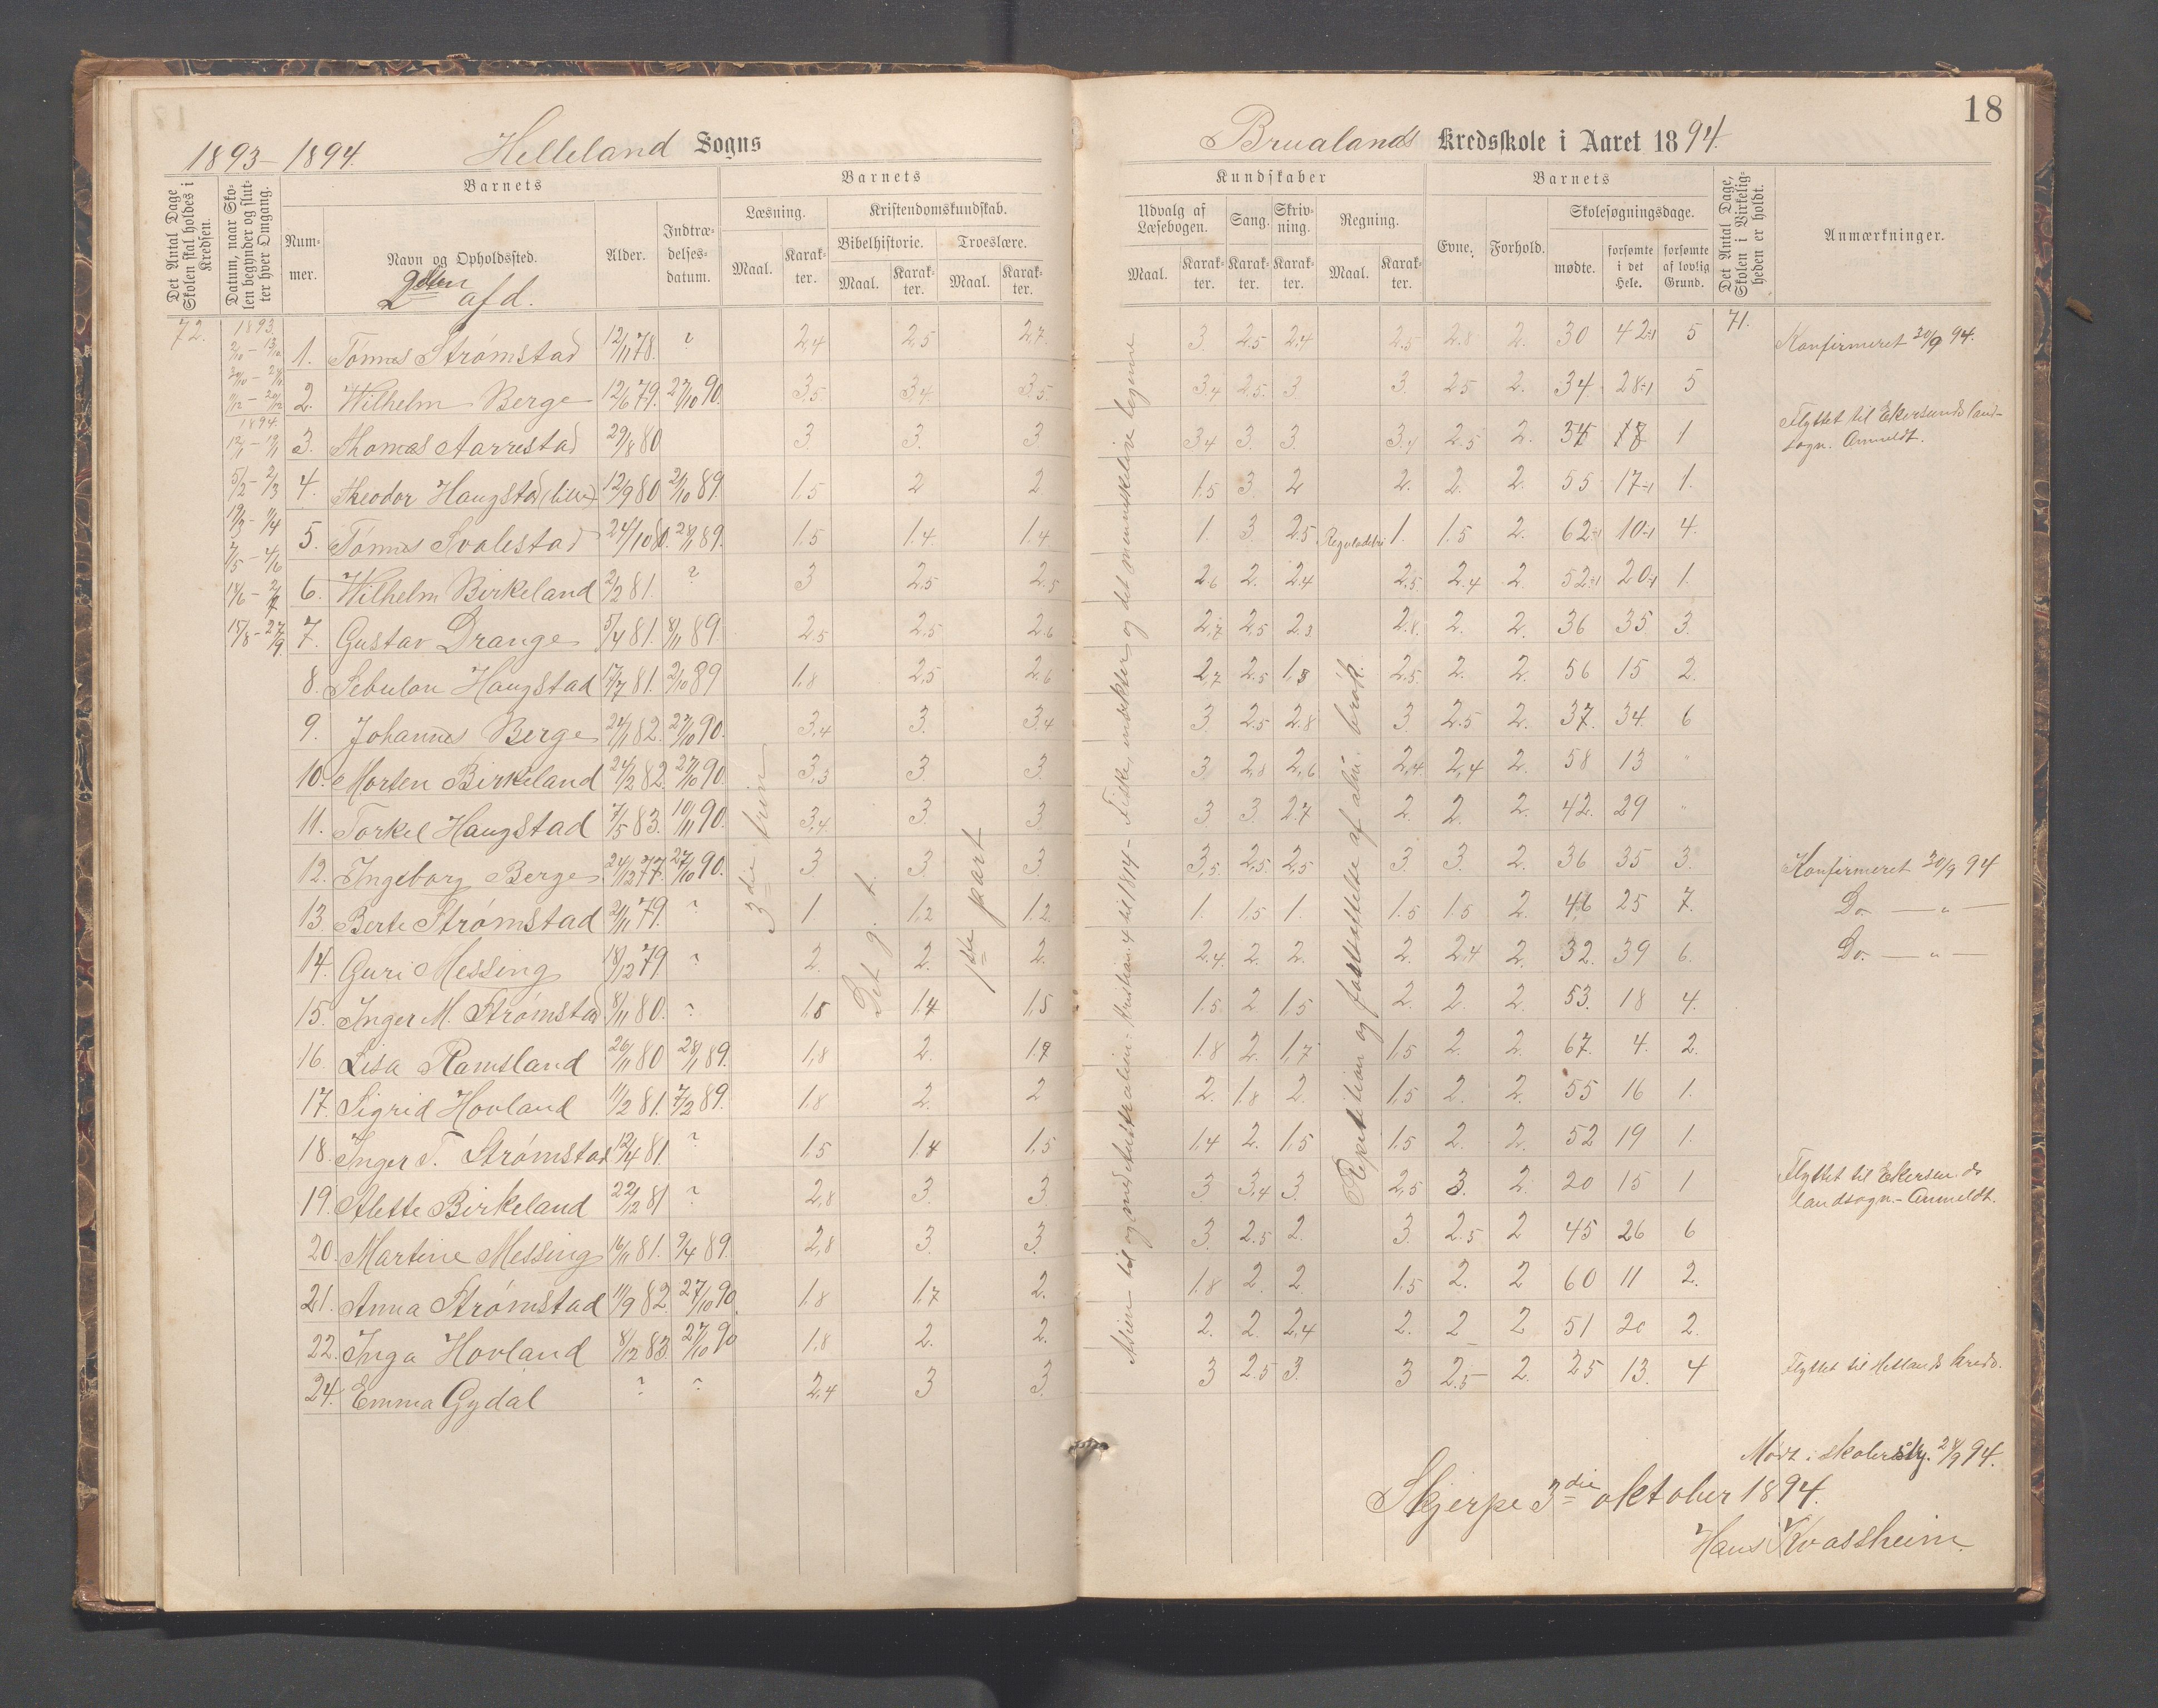 18
1893–1894. Helleland Sogns
Brualands Kredsskole i Aaret 1894.
Det Antal Dage Skolen skal holdes i Kredsen.
Datum, naar Skolen begynder og slutter hver Omgang.
Barnets
Nummer.
Navn og Opholdssted.
afd.
Alder.
Indtrædelsesdatum.
Barnets
Læsning.
Kristendomskundskab.
Bibelhistorie.
Troeslære.
Maal. Karakter. Maal. Karakter. Maal. Karakter.
Kundskaber
Udvalg af Læsebogen.
Sang.
Skrivning.
Regning.
Maal. Karakter. Karakter. Karakter. Maal. Karakter.
Barnets
Evne. Forhold.
Skolesøgningsdage.
mødte. forsømte i det Hele. forsømte af lovlig Grund.
Det Antal Dage, Skolen i Virkeligheden er holdt.
Anmærkninger.
72.
1893.
1894.
71.
1. Tønnes Strømstad 12/11 78. ? 2,4 2,5 2,7 3 2.5 2,4 2.5 2.8 2. 30 42-1 5 Konfirmeret 30/9 94.
2. Wilhelm Berge 12/6 79. 27/10 90. 3,5 3,4 3,5 3,4 2.5 3 3 2.5 2. 34 28-1 5
3. Thomas Aarrestad 29/8 80 3 3. 3 3,4 3. 3. 3,4 2.5 2. 1 Flyttet til Ekersunds landsogn. Anmeldt.
4. Theodor Haugstad (lille) 12/9 80 2/10 89. 1.5 2 2 1.5 3. 2 2. 2. 2. 55 17-1 1.
5. Tønnes Svalestad 24/10 80. 28/1 89. 1.5 1.4 1.4 1. 3. 2.5 1. 1.5 2. 62-1 10-1 4.
6. Wilhelm Birkeland 2/2 81. ? 3 2.5 2.5 2,6 2. 2.4 2,5. 2.4 2. 52-1 20-1 1.
7. Gustav Drange 5/4 81. 8/11 89. 2,5 2.5 2.6 2,7 2,5 2.8 2.8. 2. 2. 36 35 3.
8. Sebulon Haugstad 17/7 81. 2/10 89 1,8 2,5 2.6 2,7 2.5 1,8 2,5. 2. 2. 56 15 2.
9. Johannes Berge 24/1 82. 27/10 90. 3,4 3. 3,4 3. 2.5 2.8 3. 2.5 2. 37. 34. 6
10. Morten Birkeland 24/2 82. 27/10 90. 3,3 3 3. 3. 2,8 2,6 2,4. 2,4 2. 58 13 "
11. Torkel Haugstad 7/5 83. 10/11 90. 3,4. 3. 3. 3 3. 2.7 2. 2. 2. 42. 29 "
12. Ingeborg Berge 24/12 77. 27/10 90. 3 3. 3. 3,5. 2,5. 2,5 3 3. 2. 36 35 3. Konfirmeret 30/9 94
13. Berte Strømstad 2/11 79. ? 1 1,2 1.2 1. 1.5 1. 1.5 1.5 2. 46 25 7. Do. — " —
14. Guri Messing 18/12 79 ? 2. 2. 2. 2.4. 2. 2. 2. 2,4 2. 32. 39 6. Do. — " —
15. Inger M. Strømstad 8/11 80. ? 1,8 1.4 1,5 1.5. 2 1.5 2. 2. 2. 53. 18 4.
16. Lisa Ramsland 26/11 80 28/1 89. 1,8 2. 1.9 1.8 2. 1,7 1,5 2. 2. 67. 4. 2.
17. Sigrid Hovland 11/2 81. 7/2 89. 1.8 2. 2 2. 1.8 2. 1.5 2. 2. 55 16 1.
18. Inger T. Strømstad 12/4 81. ? 1.5 1.4 1,5 1,4 2. 1.5 1.5 2. 2. 52 19 1.
19. Alette Birkeland 22/12 81 ? 2,8 3. 3. 3 3,4 3. 2,5 3. 2. 20 15 1 Flyttet til Ekersunds landsogn. – Anmeldt.
20. Martine Messing 16/11 81. 9/4 89. 2,8 3. 3. 3. 2.5 2. 3. 2.5 2 45 26 6
21. Anna Strømstad 11/9 82. 27/10 90. 1.8 1,7 2. 1.8 2. 2. 1.5 2. 2 60 11 2.
22. Inga Hovland 8/12 83. 27/10 90 1.8 2. 2. 2. 2. 2,4 2. 2 2 51 20 2.
24. Emma Gydal ? ? 2,4 3 3. 3 2.5 3. 3 2.5 2. 25 13. 4 Flyttet til Hetlands kreds.
3die trin
Det g. t.
1ste part
Repetition og fastsættelse af alm. brøk.
Reguladetri
Skjerpe 3die oktober 1894.
Hans Kvassheim.